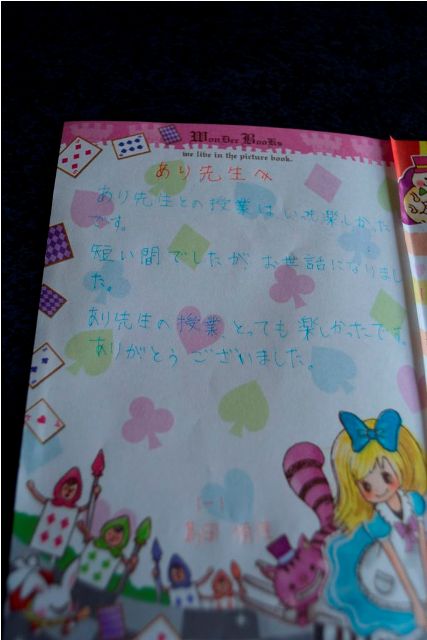 WonDer Books
we live in the picture book.
あり先生へ
あり先生との授業はいつも楽しかった
です。
短い間でしたが、お世話になりまし
た。
あり先生の授業、とっても楽しかったです。
ありがとうございました。